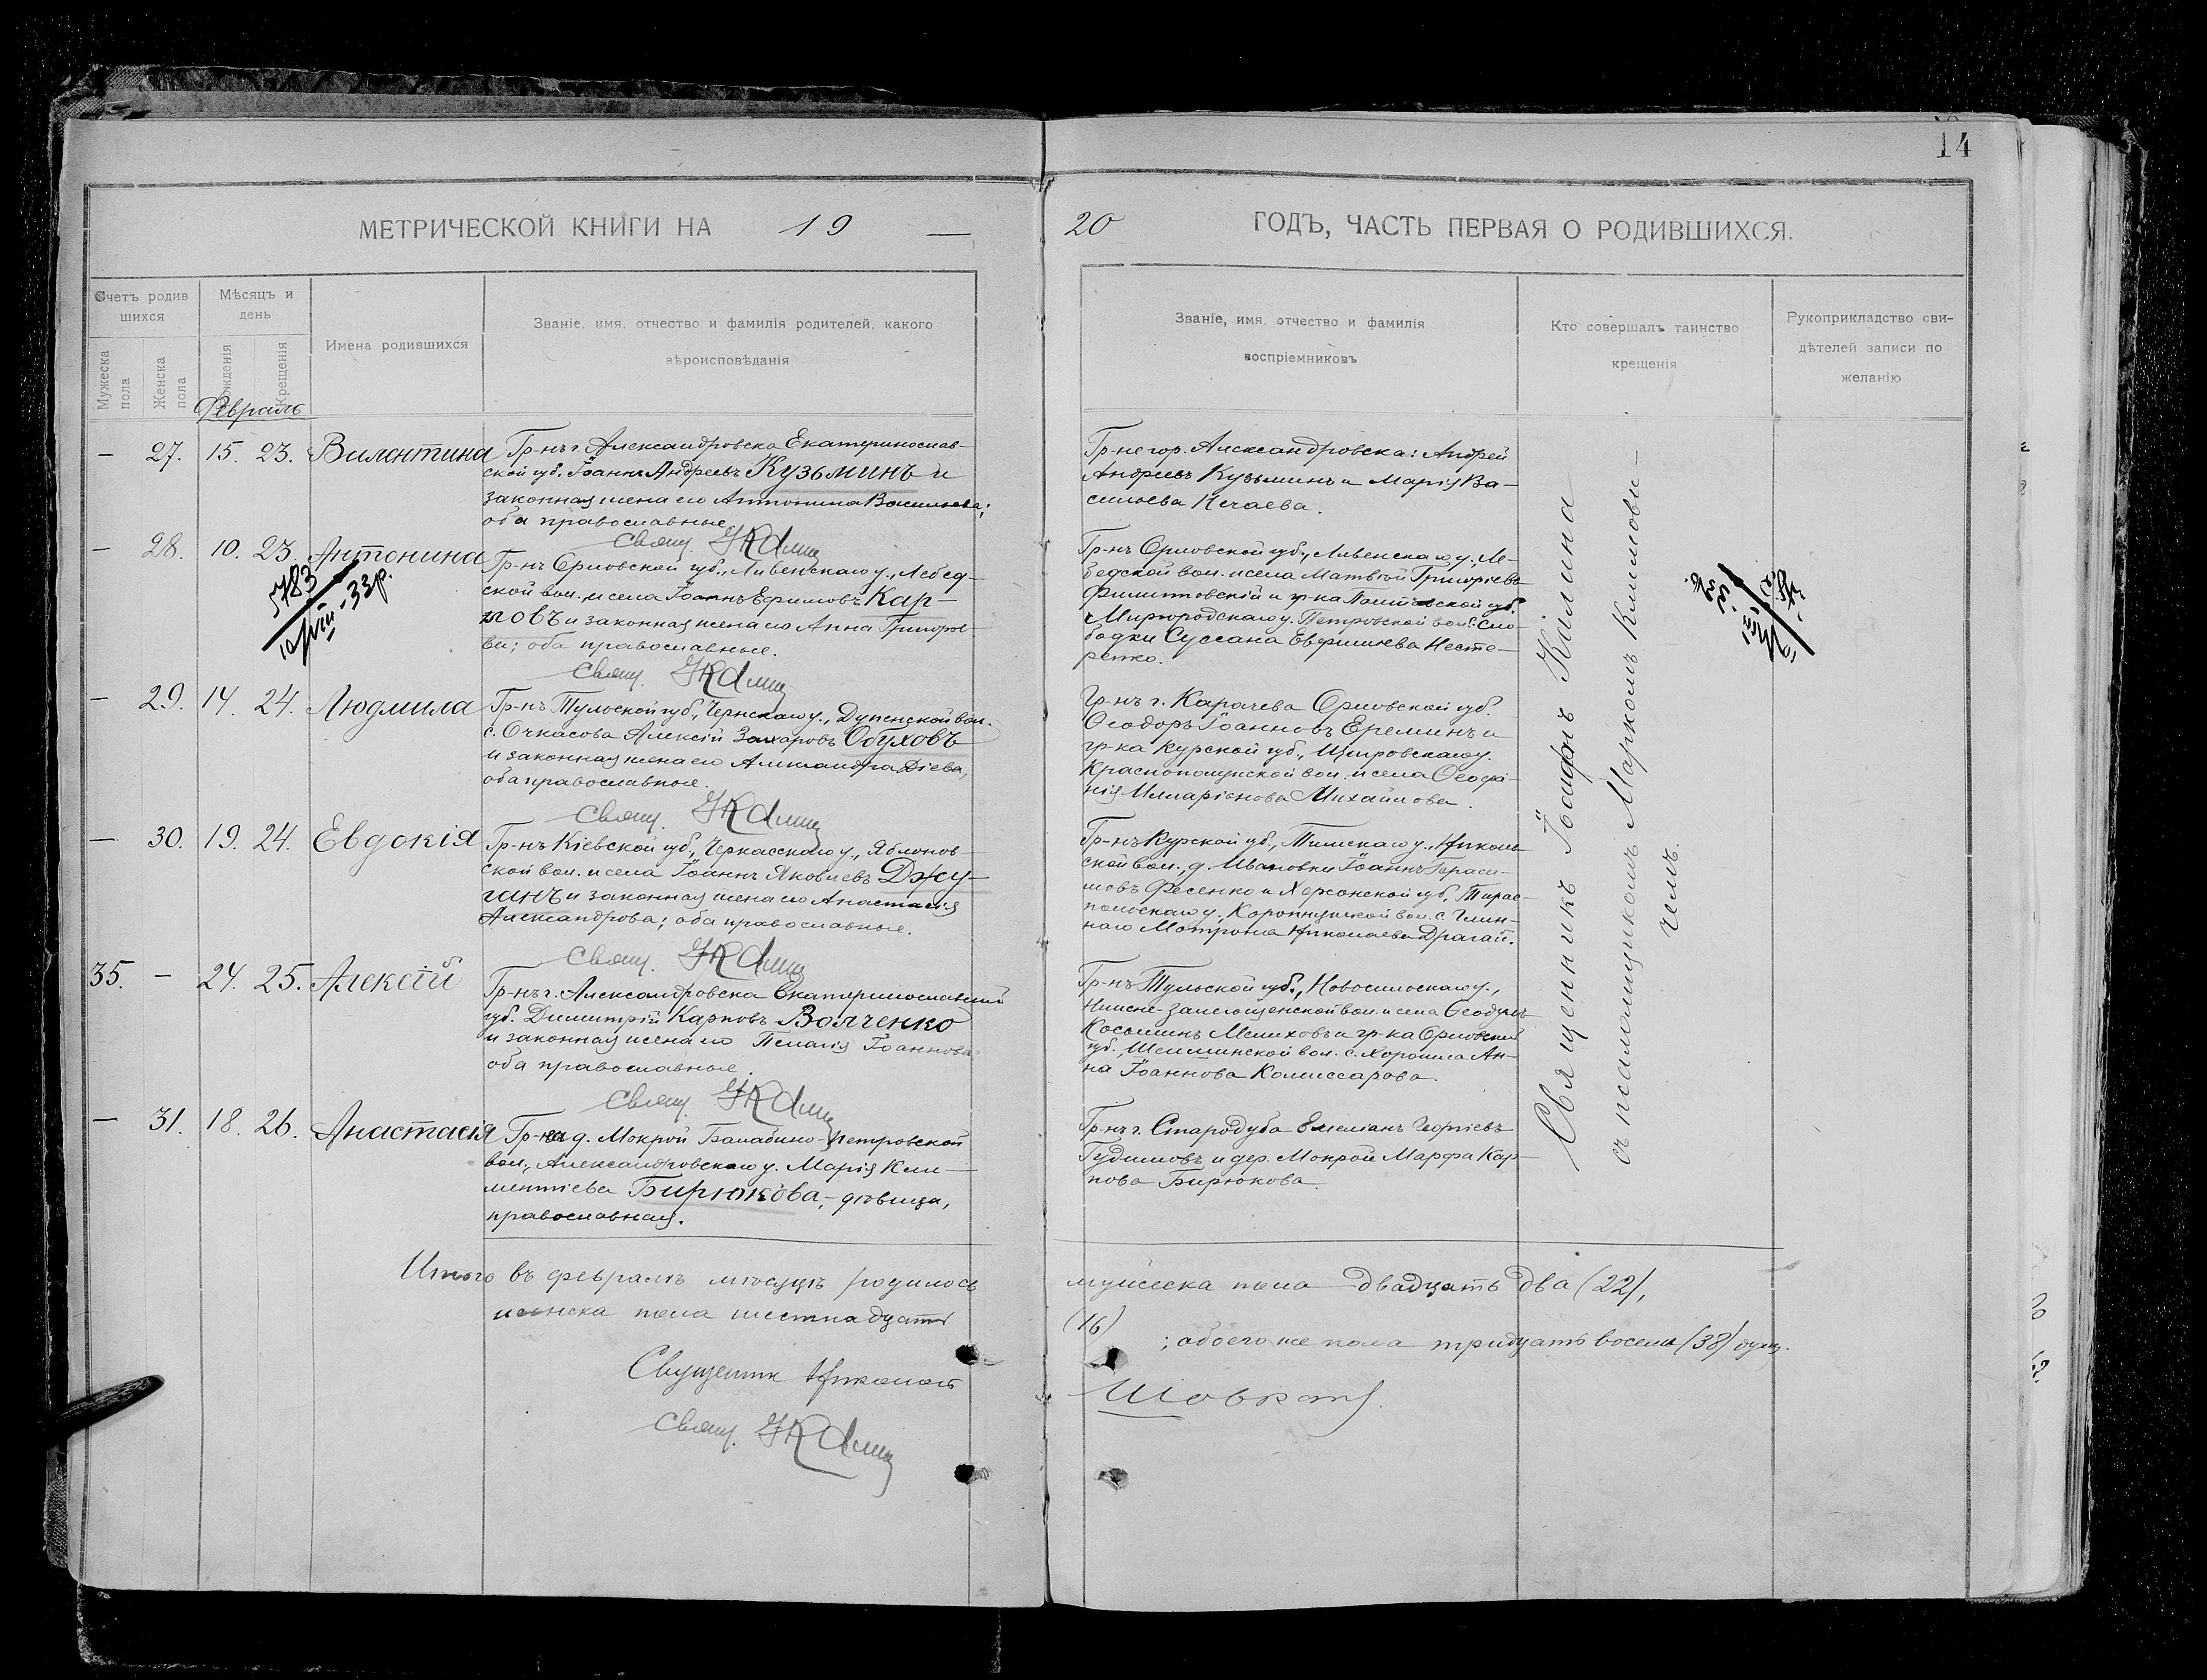 14
МЕТРИЧЕСКОЙ КНИГИ НА 19 — 20 ГОДЪ, ЧАСТЬ ПЕРВАЯ О РОДИВШИХСЯ.
Счетъ родив
шихся
Мужеска пола
Женска пола
Мѣсяцъ и
день
Рожденія
Крещенія
Имена родившихся
Званіе, имя, отчество и фамилія родителей, какого
вѣроисповѣданія
Званіе, имя, отчество и фамилія
воспріемниковъ
Кто совершалъ таинство
крещенія
Рукоприкладство сви-
дѣтелей записи по
желанію
Февраль
— 27. 15. 23. Валентина
Гр-нъ г. Александровска Екатеринослав-
ской губ. Іоаннъ Андреевъ Кузьминъ и
законная жена его Антонина Васильева;
оба православные.
Свящ. І Калина
Гр-не гор. Александровска: Андрей
Андреевъ Кузьминъ и Марія Ва-
сильева Нечаева.
— 28. 10. 23. Антонина
5783
33р.
Гр-нъ Орловской губ., Ливенскаго у., Лебед-
ской вол. и села Іоаннъ Ефимовъ Кар-
повъ и законная жена его Анна Григорье-
ва; оба православные.
Свящ. І Калина
Гр-нъ Орловской губ., Ливенскаго у., Ле-
бедской вол. и села Матвѣй Григорьевъ
Филитовскій и гр-ка Полтавской губ.
Миргородскаго у. Петровской вол. Сло-
бодки Сусанна Евфимиева Несте-
ренко.
— 29. 14. 24. Людмила
Гр-нъ Тульской губ., Чернскаго у., Дупенской вол.
с. Очкасова Алексій Захаровъ Обуховъ
и законная жена его Александра Діева,
оба православные.
Свящ. І Калина
Гр-нъ г. Карачева Орловской губ.
Ѳеодоръ Іоанновъ Ереминъ и
гр-ка Курской губ., Щигровскаго у.
Краснополянской вол. и села Ѳеофа-
нія Илларіонова Михайлова.
— 30. 19. 24. Евдокія
Гр-нъ Кіевской губ., Черкасскаго у., Яблонов-
ской вол. и села Іоаннъ Яковлевъ Джу-
ганъ и законная жена его Анастасія
Александрова; оба православные.
Свящ. І Калина
Гр-нъ Курской губ., Тимскаго у., Николь
ской вол., д. Ивановки Іоаннъ Гераси-
мовъ Фесенко и Херсонской губ., Тирас-
польскаго у., вол. с. Глин-
наго Матрона Николаева Драгай.
35. — 24. 25. Алексѣй
Гр-нъ г. Александровска Екатеринославской
губ. Димитрій Карповъ Волченко
и законная жена его Пелагія Іоаннова
оба православные.
Свящ. І Калина
Гр-нъ Тульской губ., Новосильскаго у.,
Нижне-Залегощенской вол. и села Ѳеодулъ
Косьминъ Мелиховъ и гр-ка Орловской
губ. вол. с. Ан-
на Іоаннова Комиссарова.
— 31. 18. 26. Анастасія
Гр-ка д. Мокрой Балабино-Петровской
вол., Александровскаго у. Марія Кли-
ментіева Бирюкова, — дѣвица,
православная.
Гр-нъ г. Стародуба Емеліанъ Георгіевъ
Гудимовъ и дер. Мокрой Марфа Кар-
пова Бирюкова.
Священникъ Іоаннъ Калина
съ псаломщикомъ Маркомъ Климови-
чемъ.
Итого въ февралѣ мѣсяцѣ родилось мужеска пола двадцать два (22),
женска пола шестнадцать (16); обоего же пола тридцать восемь (38) душъ.
Священник Николай
Свящ. І Калина